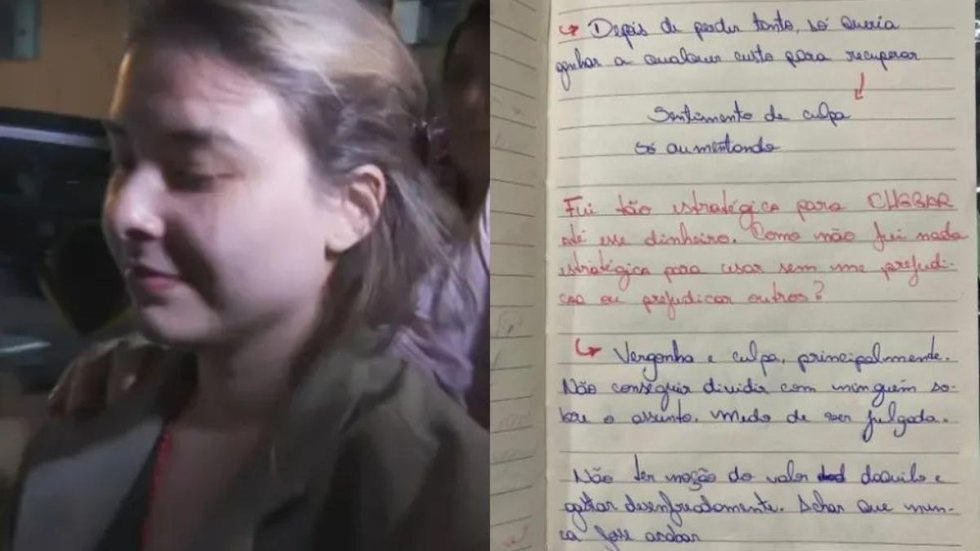 Depois de perder tanto, só queria
ganhar a qualquer custo para recuperar
Sentimento de culpa
só aumentando
Fui tão estratégica para CHEGAR
até esse dinheiro. Como não fui nada
estratégica para usar sem me prejudi-
car ou prejudicar outros?
Vergonha e culpa, principalmente.
Não conseguia dividir com ninguém so-
bre o assunto. Medo de ser julgada.
Não ter noção do valor daquilo e
gastar desenfreadamente. Achar que nun-
ca fosse acabar